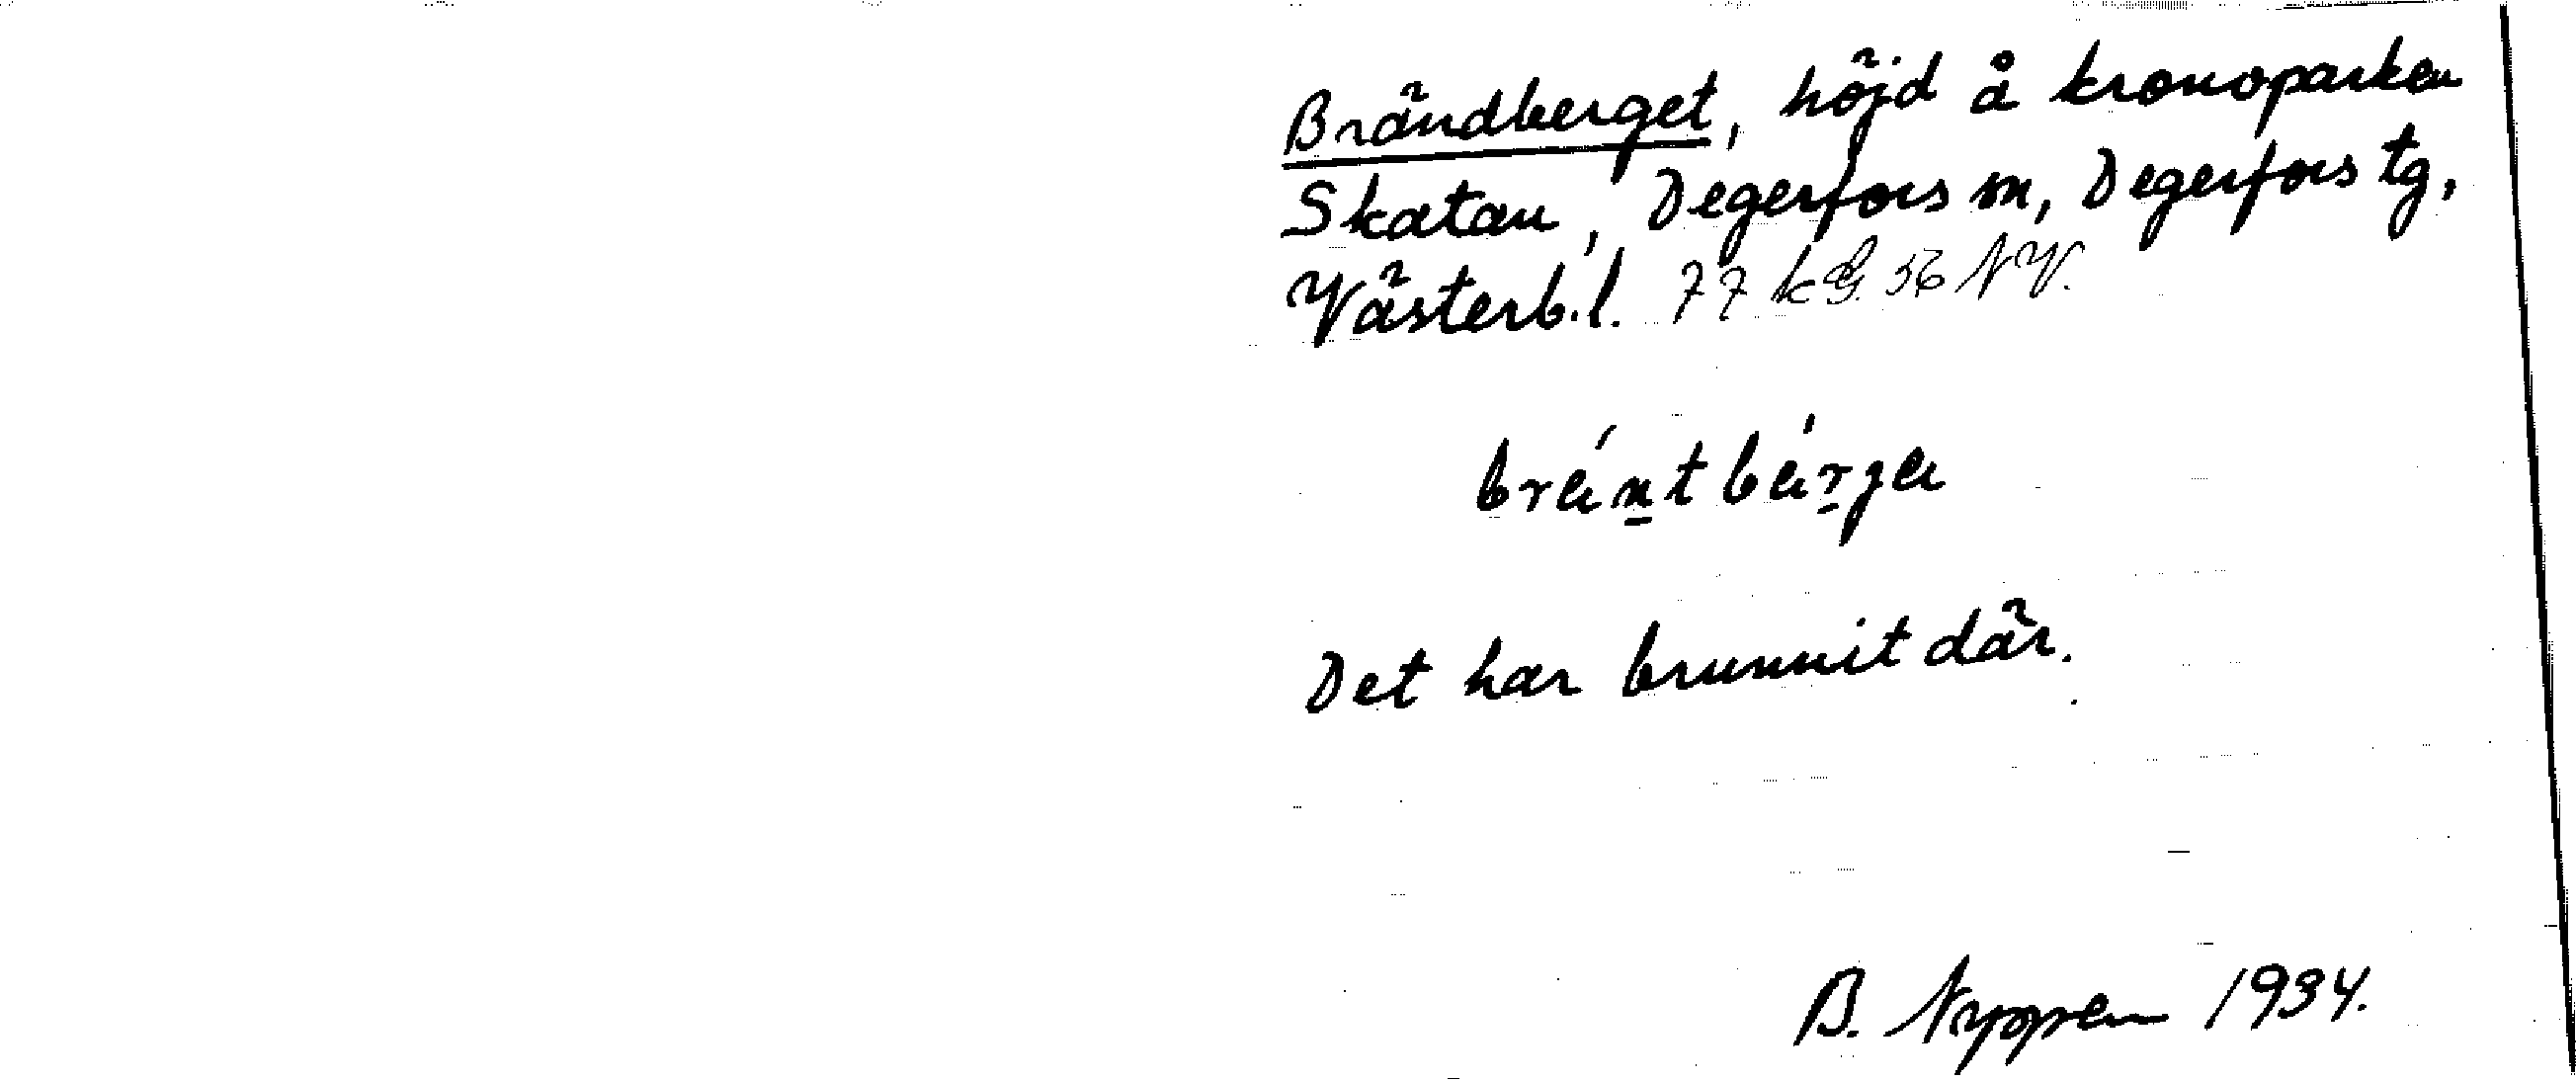 Brändberget, höjd å kronoparken
Skatan, Degerfors sn, Degerfors tg,
Västerb.l. 77 kG. 56 NV.
Det har brunnit där.
B. Nyppen 1934.